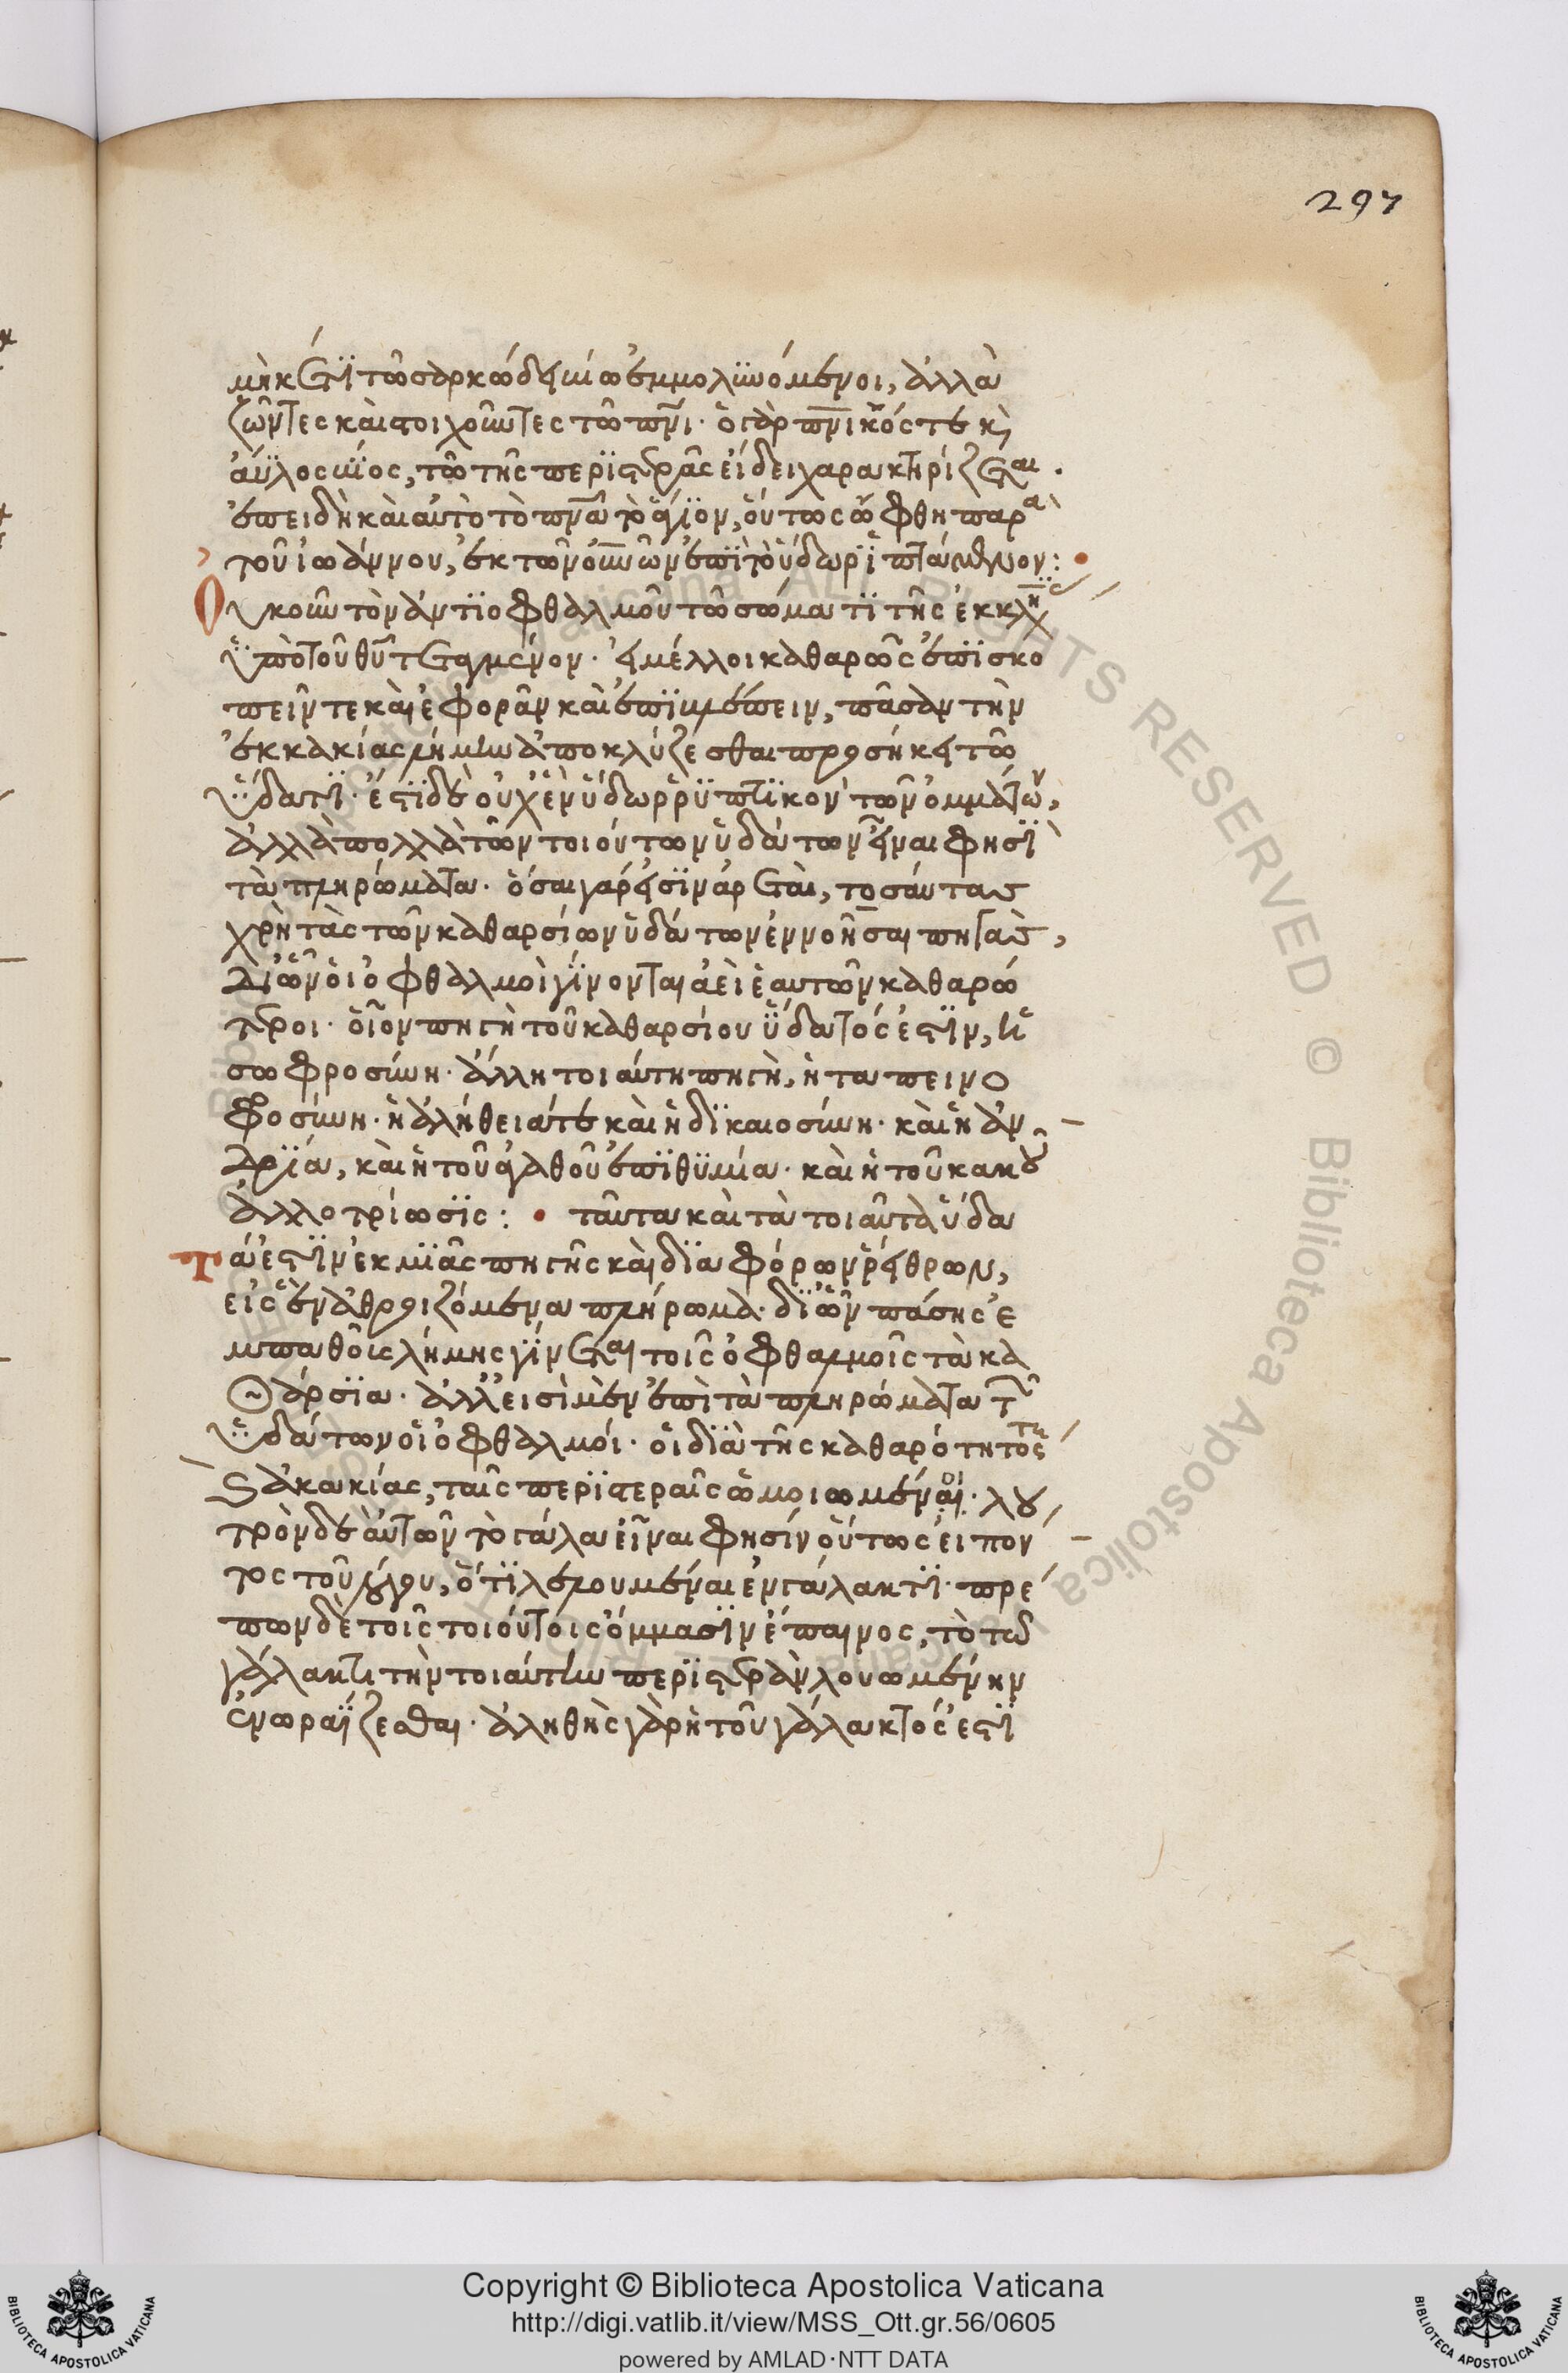 297
μὴκέτι τῶ σαρκώδει βίω ἐμμολϋνόμενοι, ἀλλὰ
ζῶντες καὶ στοιχοῦντες τῶ πνϊ· ὁ γὰρ πνικός τε κ̀
ἄϋλος βίος, τῶ τῆς περιστερᾶς εἴδει χαρακτηρίζεται.
ἐπειδὴ καὶ αὐτὸ τὸ πνα τὸ ἅγιον, οὕτως ὤφθη παρὰ
τοῦ ἰωάννου, ἐκ τῶν οὐνῶν ἐπὶ τὸ ὕδωρ
Οὐκοῦν τὸν ἀντὶ ὀφθαλμοῦ τῶ σώματι τῆς ἐκκλη
ὑπὸ τοῦ θυ τεταγμένον· εἰ μέλλοι καθαρῶς ἐπισκο
πεῖν τε καὶ ἐφορᾶν καὶ ἐπιβλέπειν, πᾶσαν τὴν
ἐκ κακίας λήμην ἀποκλύζεσθαι προσήκει τῶ
ὕδατι· ἔστι δὲ οὐχ ἓν ὕδωρ ῥυπτικὸν τῶν ὀμμάτων,
ἀλλὰ πολλὰ τῶν τοιούτων ὑδάτων εἶναι φησὶ
τὰ πληρώματα· ὅσαι γάρ εἰσιν ἀρεταὶ, τοσαύτας
χρὴ τὰς τῶν καθαρσίων ὑδάτων ἐννοῆσαι πηγὰς,
δι ὧν οἱ ὀφθαλμοὶ γίνονται ἀεὶ ἑαυτῶν καθαρώ
τεροι· οἷον πηγὴ τοῦ καθαρσίου ὕδατός ἐστιν, ἡ
σωφροσύνη· ἄλλη τοιαύτη πηγὴ, ἡ ταπεινο
φροσύνη· ἡ ἀλήθειά τε καὶ ἡ δικαιοσύνη· καὶ ἡ ἀν
δρία, καὶ ἡ τοῦ ἀγαθοῦ ἐπιθϋμία· καὶ ἡ τοῦ κακοῦ
ἀλλοτρίωσις: • ταῦτα καὶ τὰ τοιαῦτα ὕδα
Τά ἐστιν ἐκ μιᾶς πηγῆς καὶ διαφόρων ῥείθρων,
εἰς ἓν ἀθροιζόμενα πλήρωμα· δι ὧν πάσης ἐ
μπαθοῦς λήμης γίνεται τοῖς ὀφθαλμοῖς τὰ κα
θάρσια· ἀλλ εἰσὶ μὲν ἐπὶ τὰ πληρώματα τῶν
ὑδάτων οἱ ὀφθαλμοί· οἱ διὰ τῆς καθαρότητός τε
κ̀ ἀκακίας, ταῖς περιστεραῖς ὡμοιωμένοι· λου
τρὸν δὲ αὐτῶν τὸ γάλα εἶναι φησίν οὕτως εἰπόν
τος τοῦ λόγου, ὅτι λελουμέναι ἐν γάλακτι· πρέ
πων δὲ τοῖς τοιούτοις ὄμμασιν ἔπαινος, τὸ τῶ
γάλακτι τὴν τοιαύτην περιστερὰν λουομένην
ἐνωραΐζεσθαι· ἀληθὴς γὰρ ἡ τοῦ γάλακτός ἐστι
Copyright © Biblioteca Apostolica Vaticana
http://digi.vatlib.it/view/MSS_Ott.gr.56/0605
powered by AMLAD·NTT DATA